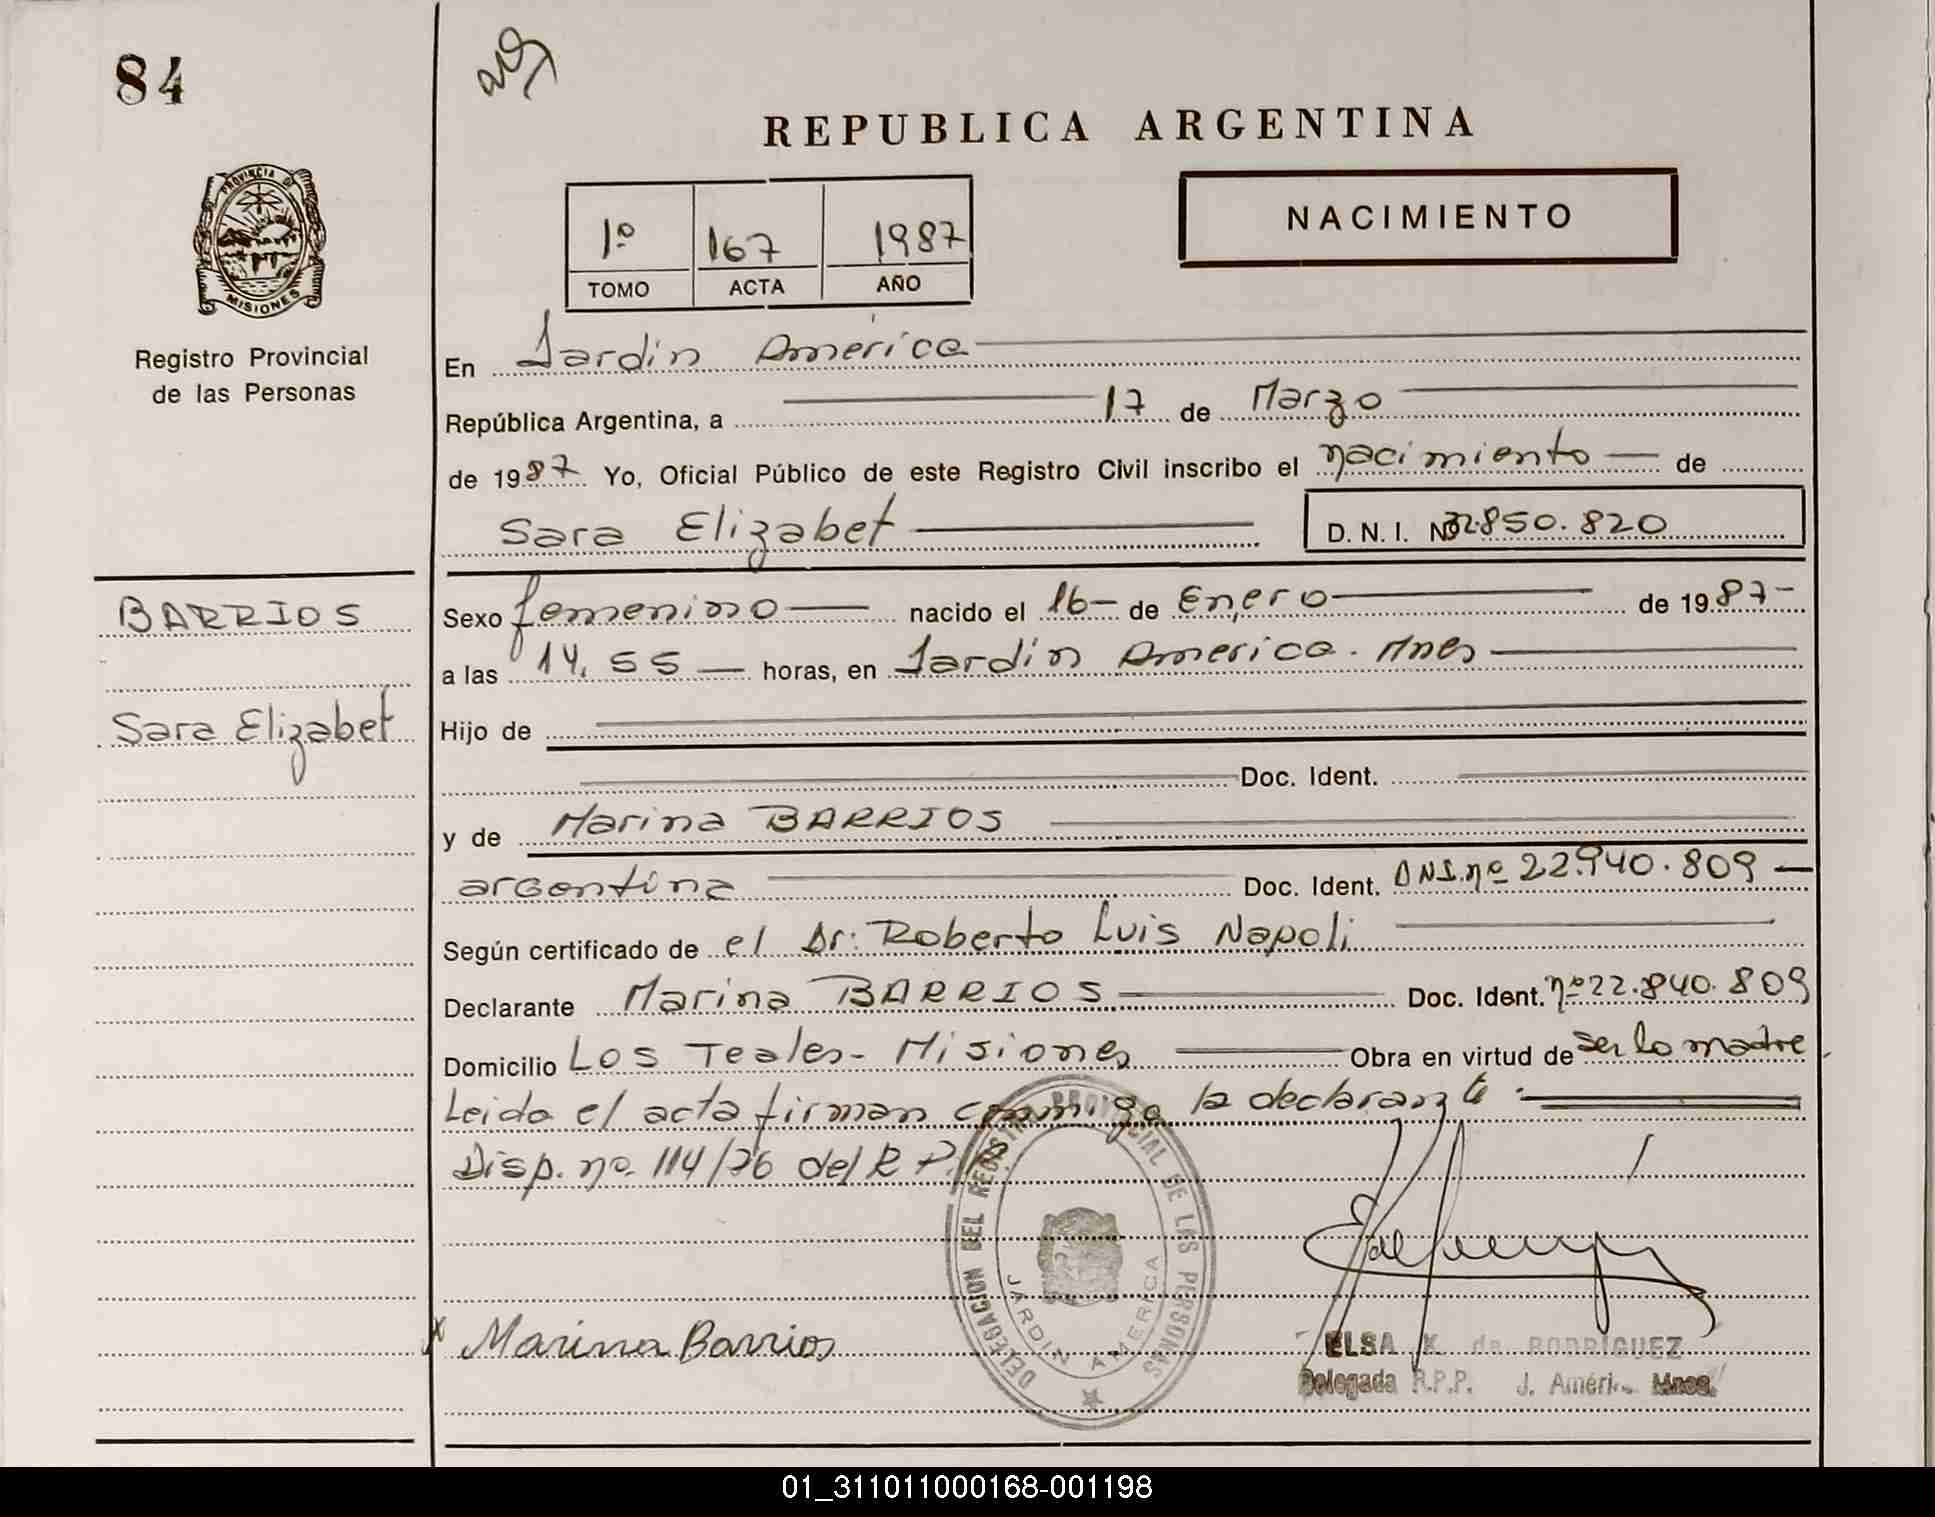 84
REPUBLICA ARGENTINA
PROVINCIA DE
MISIONES
Registro Provincial
de las Personas
1º 167 1987
TOMO ACTA AÑO
NACIMIENTO
En Jardin América
República Argentina, a 17 de Marzo
de 1987 Yo, Oficial Público de este Registro Civil inscribo el nacimiento de
Sara Elizabet D. N. I. Nº 32.850.820
BARRIOS
Sara Elizabet
Sexo femenino nacido el 16 de Enero de 1987
a las 14,55 horas, en Jardin America. Mnes
Hijo de
Doc. Ident.
y de Marina BARRIOS
argentina Doc. Ident. DNI. nº 22.940.809
Según certificado de el Dr: Roberto Luis Napoli
Declarante Marina BARRIOS Doc. Ident. nº 22.840.809
Domicilio Los Teales - Misiones Obra en virtud de ser la madre
Leida el acta firman conmigo la declarante
Disp. no. 114/76 del R.P.P.
DELEGACION DEL REGISTRO PROVINCIAL DE LAS PERSONAS
JARDIN AMERICA
x Marina Barrios
ELSA K. de RODRIGUEZ
Delegada R.P.P. J. Améri. Mnes.
01_311011000168-001198